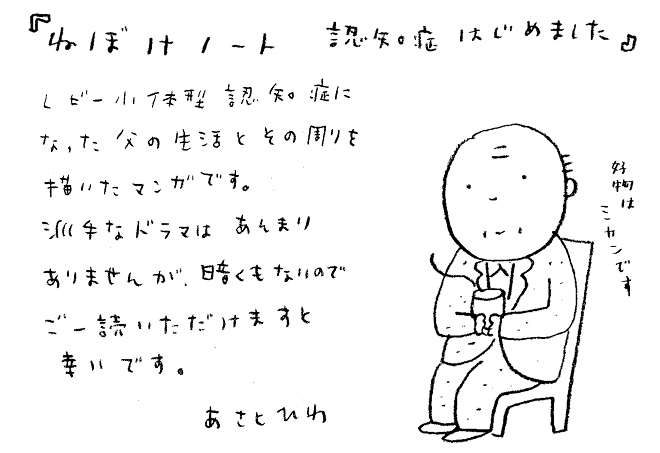 『ねぼけノート 認知症はじめました』
レビー小体型認知症に
なった父の生活とその周りを
描いたマンガです。
派手なドラマは あんまり
ありませんが、暗くもないので
ご一読いただけますと
幸いです。
あさとひわ
好物は
ミカンです